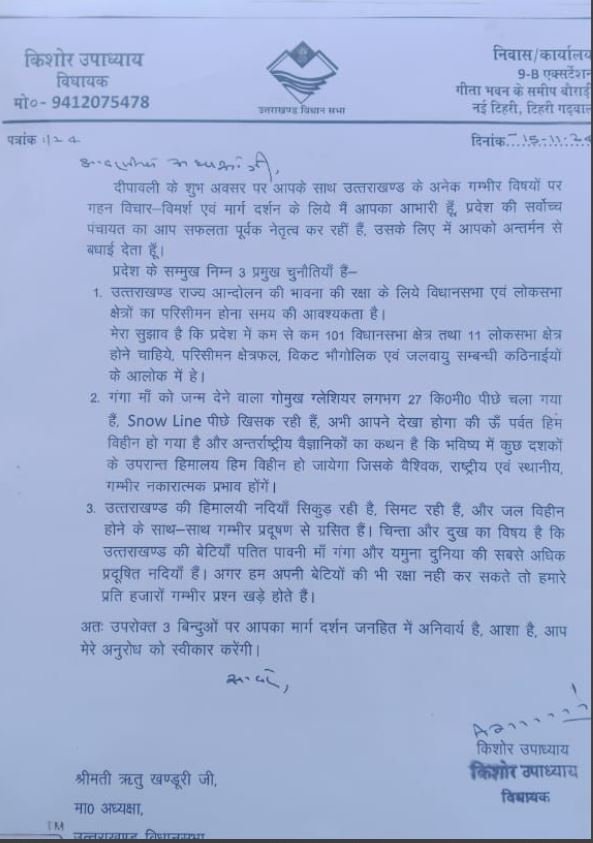 किशोर उपाध्याय
विधायक
मो०- 9412075478
उत्तराखण्ड विधान सभा
निवास/कार्यालय
9-B एक्सटेंशन
गीता भवन के समीप बौराड़ी
नई टिहरी, टिहरी गढ़वाल
पत्रांक
दिनांक 15-11-24
दीपावली के शुभ अवसर पर आपके साथ उत्तराखण्ड के अनेक गम्भीर विषयों पर
गहन विचार–विमर्श एवं मार्ग दर्शन के लिये मैं आपका आभारी हूँ, प्रदेश की सर्वोच्च
पंचायत का आप सफलता पूर्वक नेतृत्व कर रहीं हैं, उसके लिए में आपको अन्तर्मन से
बधाई देता हूँ।
प्रदेश के सम्मुख निम्न 3 प्रमुख चुनौतियाँ हैं–
1. उत्तराखण्ड राज्य आन्दोलन की भावना की रक्षा के लिये विधानसभा एवं लोकसभा
क्षेत्रों का परिसीमन होना समय की आवश्यकता है।
मेरा सुझाव है कि प्रदेश में कम से कम 101 विधानसभा क्षेत्र तथा 11 लोकसभा क्षेत्र
होने चाहिये, परिसीमन क्षेत्रफल, विकट भौगोलिक एवं जलवायु सम्बन्धी कठिनाईयों
के आलोक में हे।
2. गंगा माँ को जन्म देने वाला गोमुख ग्लेशियर लगभग 27 कि०मी० पीछे चला गया
हैं, Snow Line पीछे खिसक रही हैं, अभी आपने देखा होगा की ऊँ पर्वत हिम
विहीन हो गया है और अन्तर्राष्ट्रीय वैज्ञानिकों का कथन है कि भविष्य में कुछ दशकों
के उपरान्त हिमालय हिम विहीन हो जायेगा जिसके वैश्विक, राष्ट्रीय एवं स्थानीय,
गम्भीर नकारात्मक प्रभाव होंगें।
3. उत्तराखण्ड की हिमालयी नदियाँ सिकुड़ रही है, सिमट रही हैं, और जल विहीन
होने के साथ–साथ गम्भीर प्रदूषण से ग्रसित हैं। चिन्ता और दुख का विषय है कि
उत्तराखण्ड की बेटियाँ पतित पावनी माँ गंगा और यमुना दुनिया की सबसे अधिक
प्रदूषित नदियाँ हैं। अगर हम अपनी बेटियों की भी रक्षा नही कर सकते तो हमारे
प्रति हजारों गम्भीर प्रश्न खड़े होते हैं।
अतः उपरोक्त 3 बिन्दुओं पर आपका मार्ग दर्शन जनहित में अनिवार्य है, आशा है, आप
मेरे अनुरोध को स्वीकार करेंगी।
सादर,
किशोर उपाध्याय
किशोर उपाध्याय
विधायक
श्रीमती ऋतु खण्डूरी जी,
मा0 अध्यक्षा,
उत्तराखण्ड विधानसभा